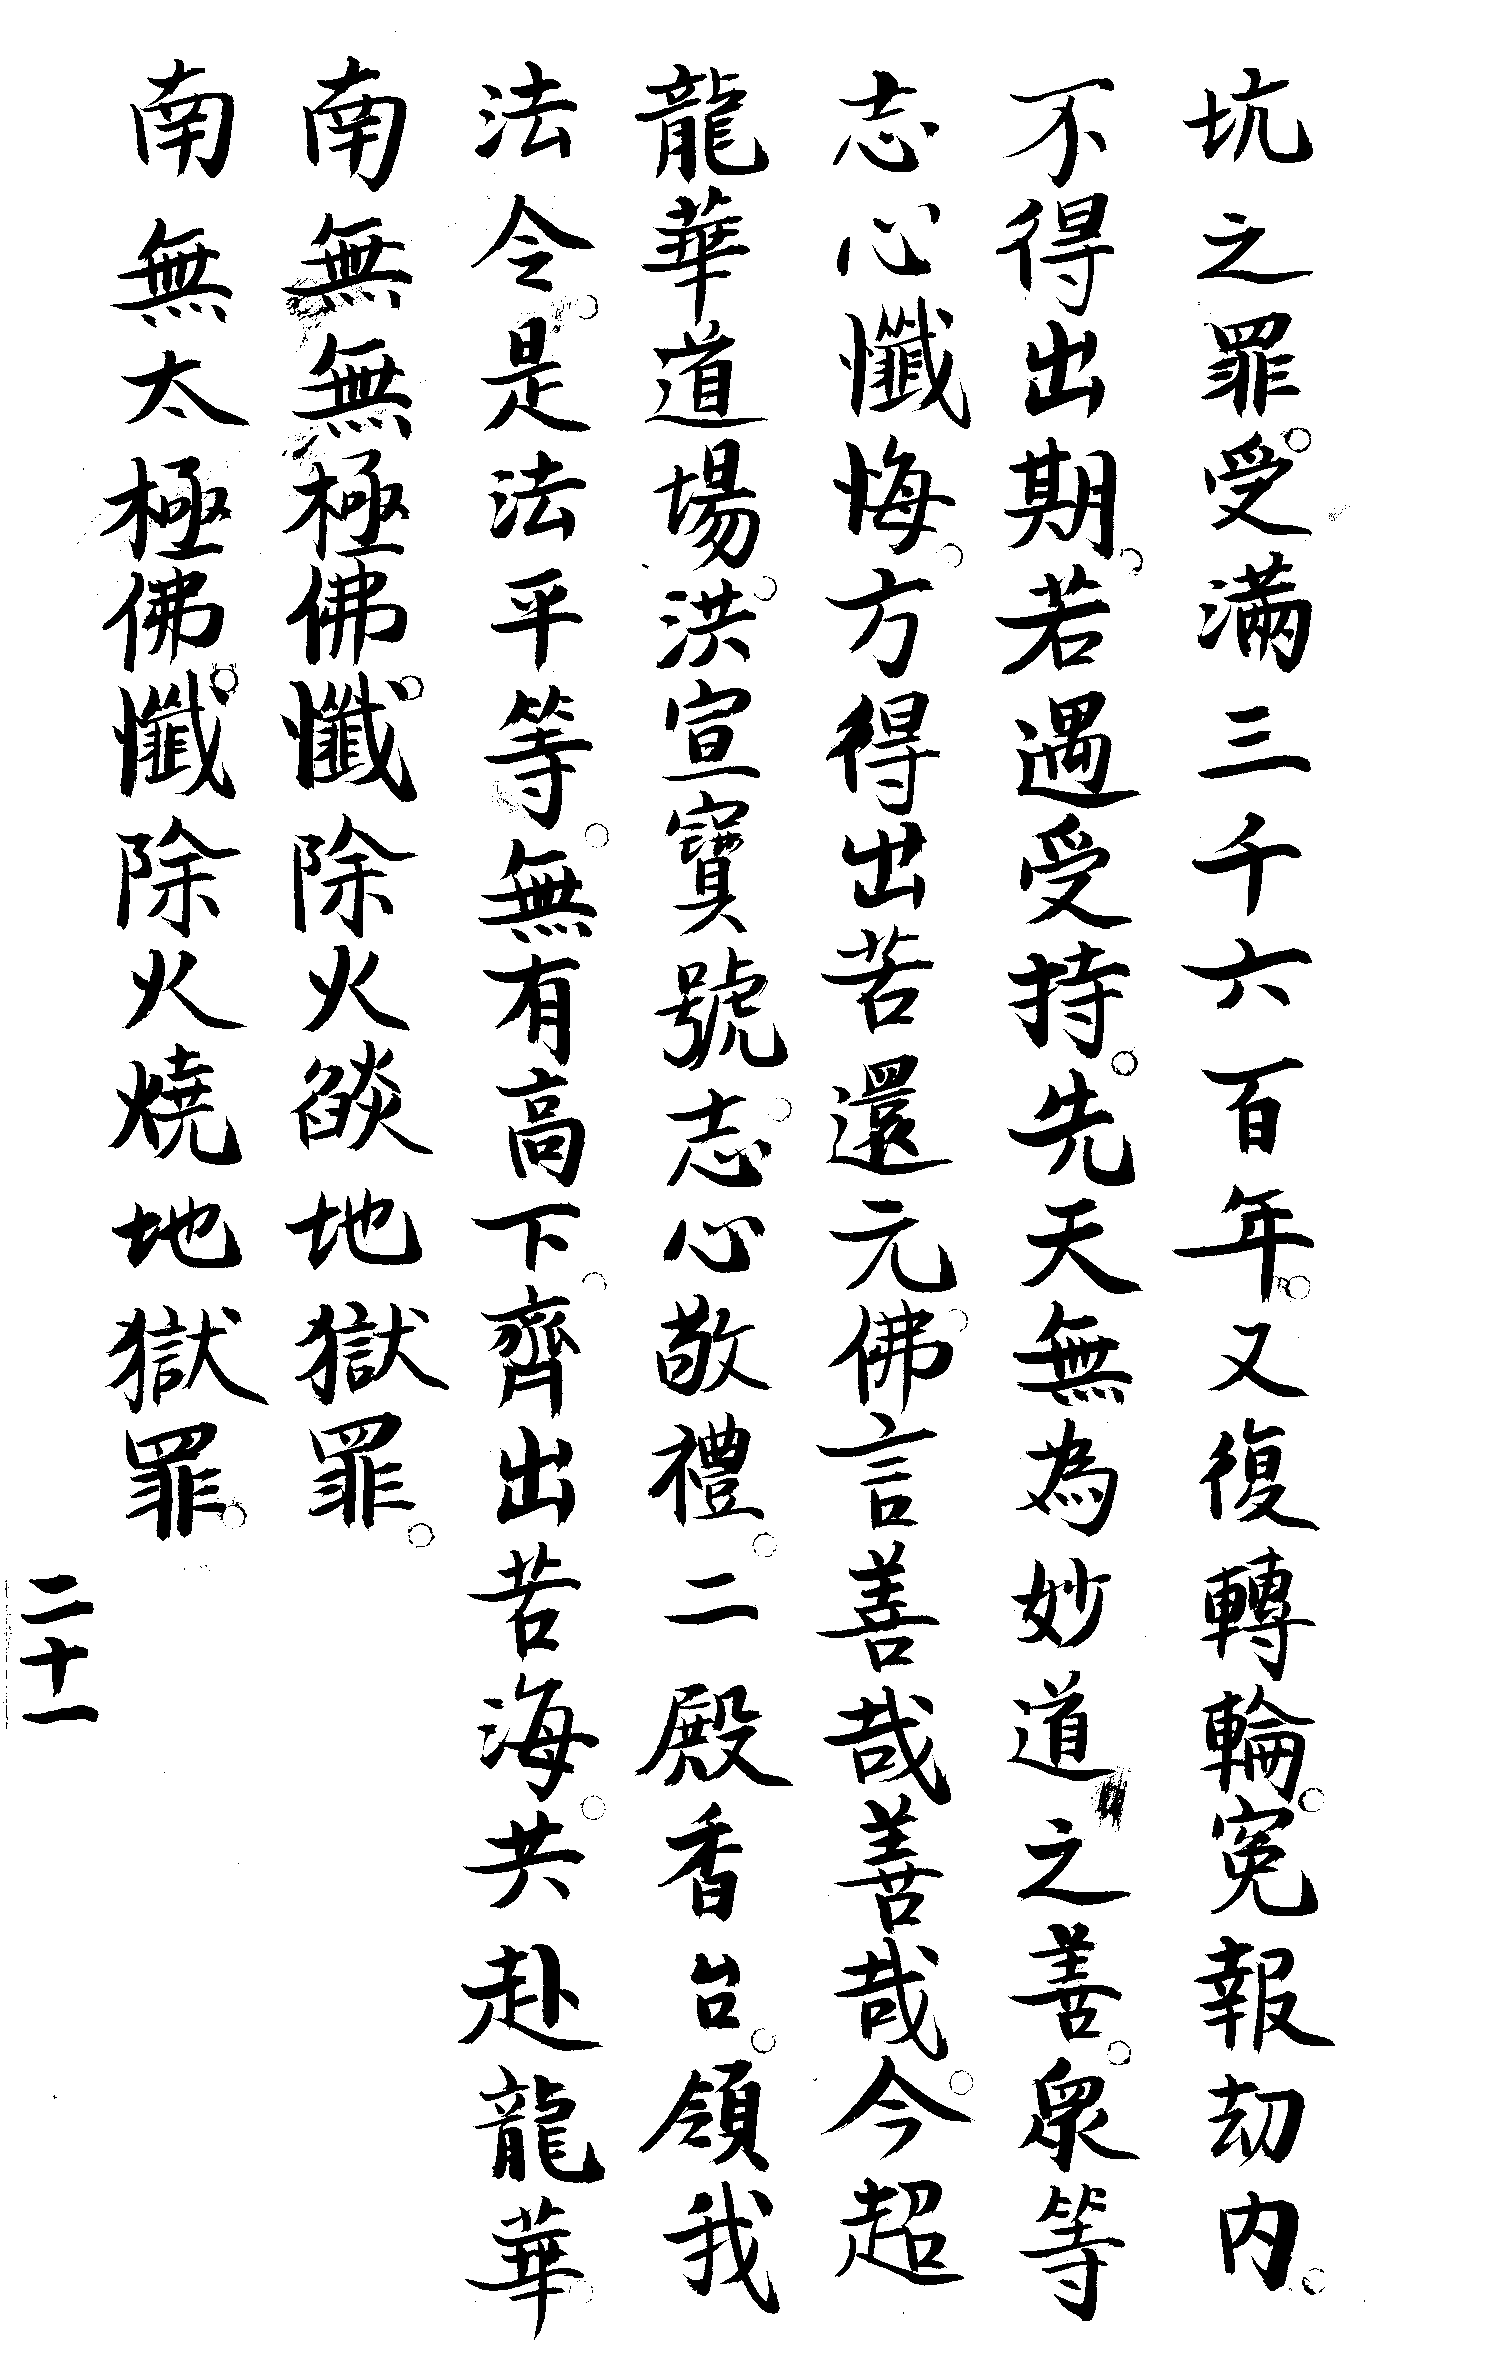 坑之罪。受滿三千六百年。又復轉輪。寃報劫內。
不得出期。若遇受持。先天無為妙道之善。衆等
志心懺悔。方得出苦還元。佛言善哉善哉。今超
龍華道場。洪宣寶號。志心敬禮。二殿香台。領我
法令。是法平等。無有高下。齊出苦海。共赴龍華。
南無無極佛。懺除火燄地獄罪。
南無太極佛。懺除火燒地獄罪。
二十一